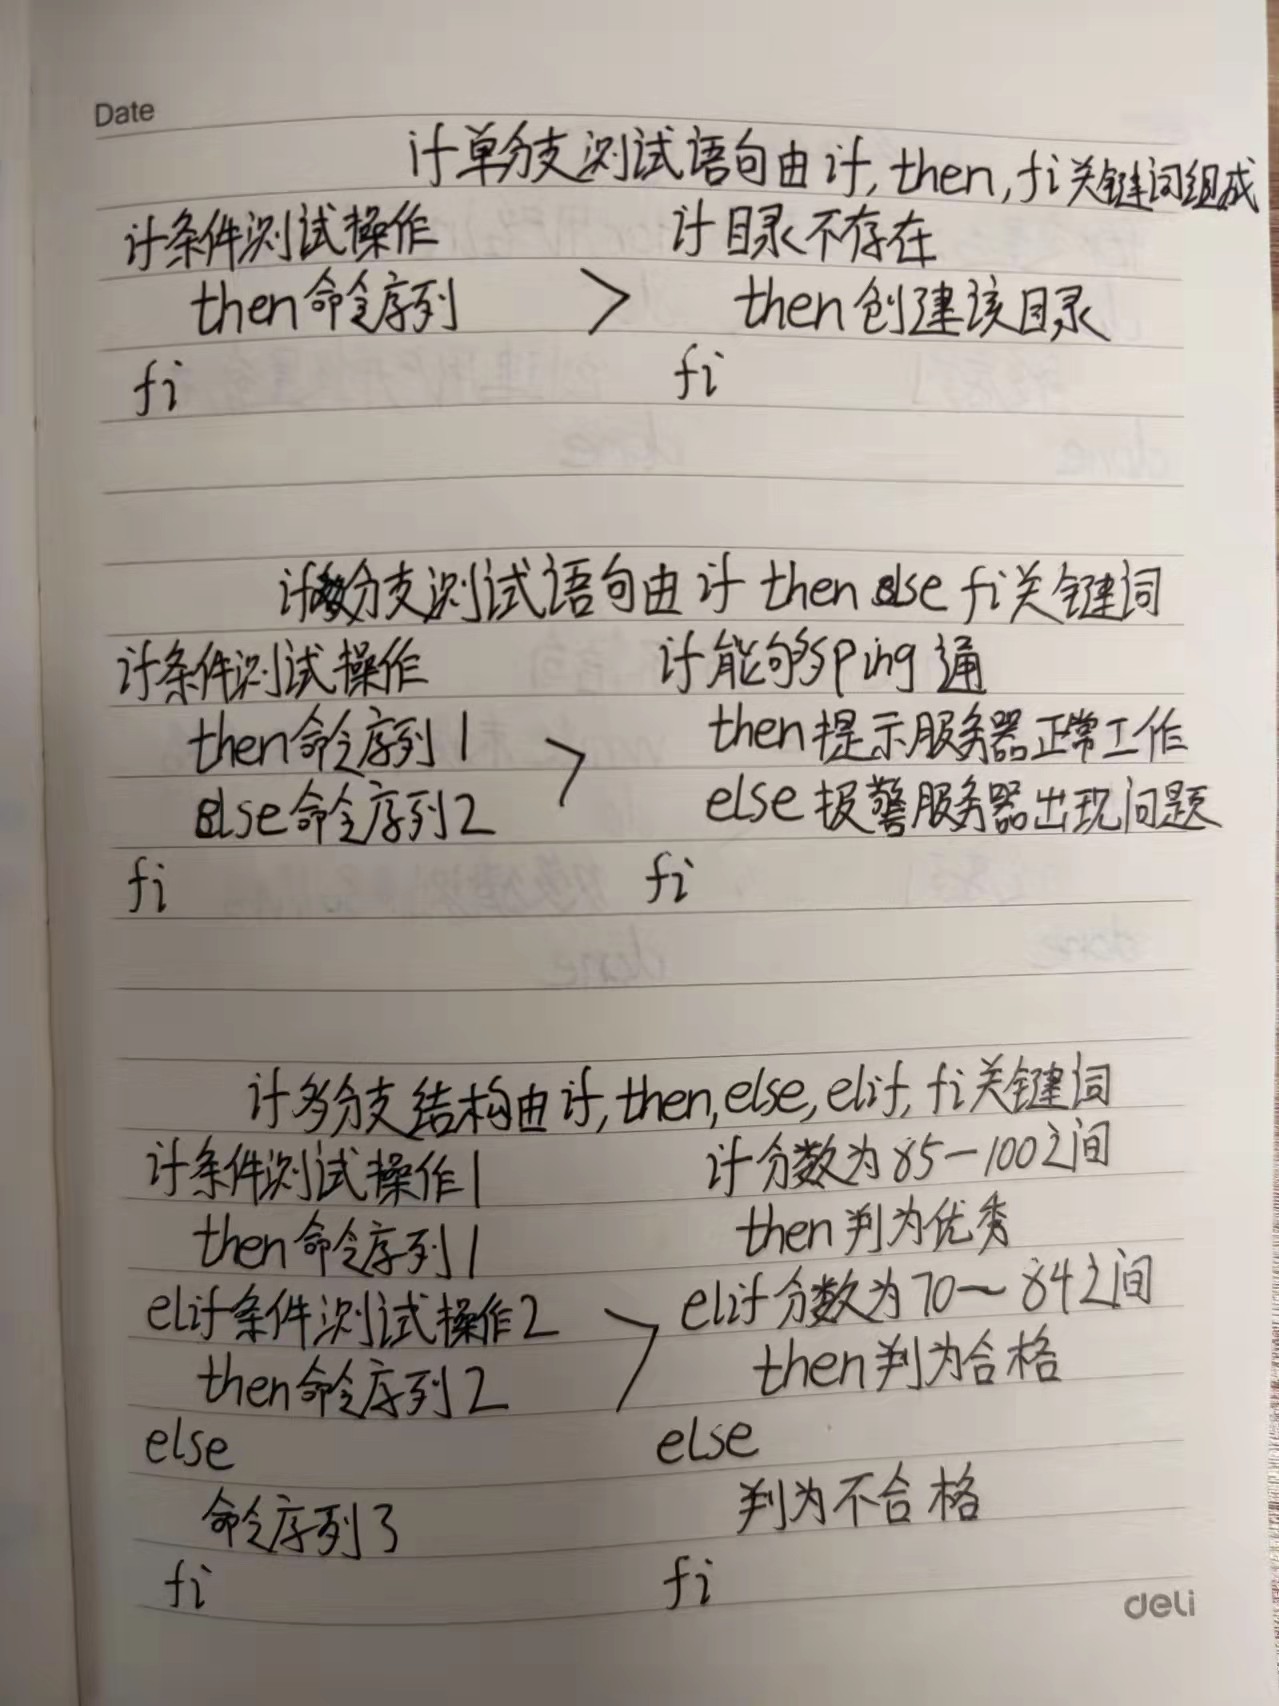 Date
if单分支测试语句由if,then,fi关键词组成
if条件测试操作 if目录不存在
then命令序列 > then创建该目录
fi fi
if分支测试语句由if then else fi关键词
if条件测试操作 if能够ping通
then命令序列1 > then提示服务器正常工作
else命令序列2 else报警服务器出现问题
fi fi
if多分支结构由if,then,else,elif,fi关键词
if条件测试操作1 if分数为85-100之间
then命令序列1 then判为优秀
elif条件测试操作2 > elif分数为70~84之间
then命令序列2 then判为合格
else else
命令序列3 判为不合格
fi fi
deli